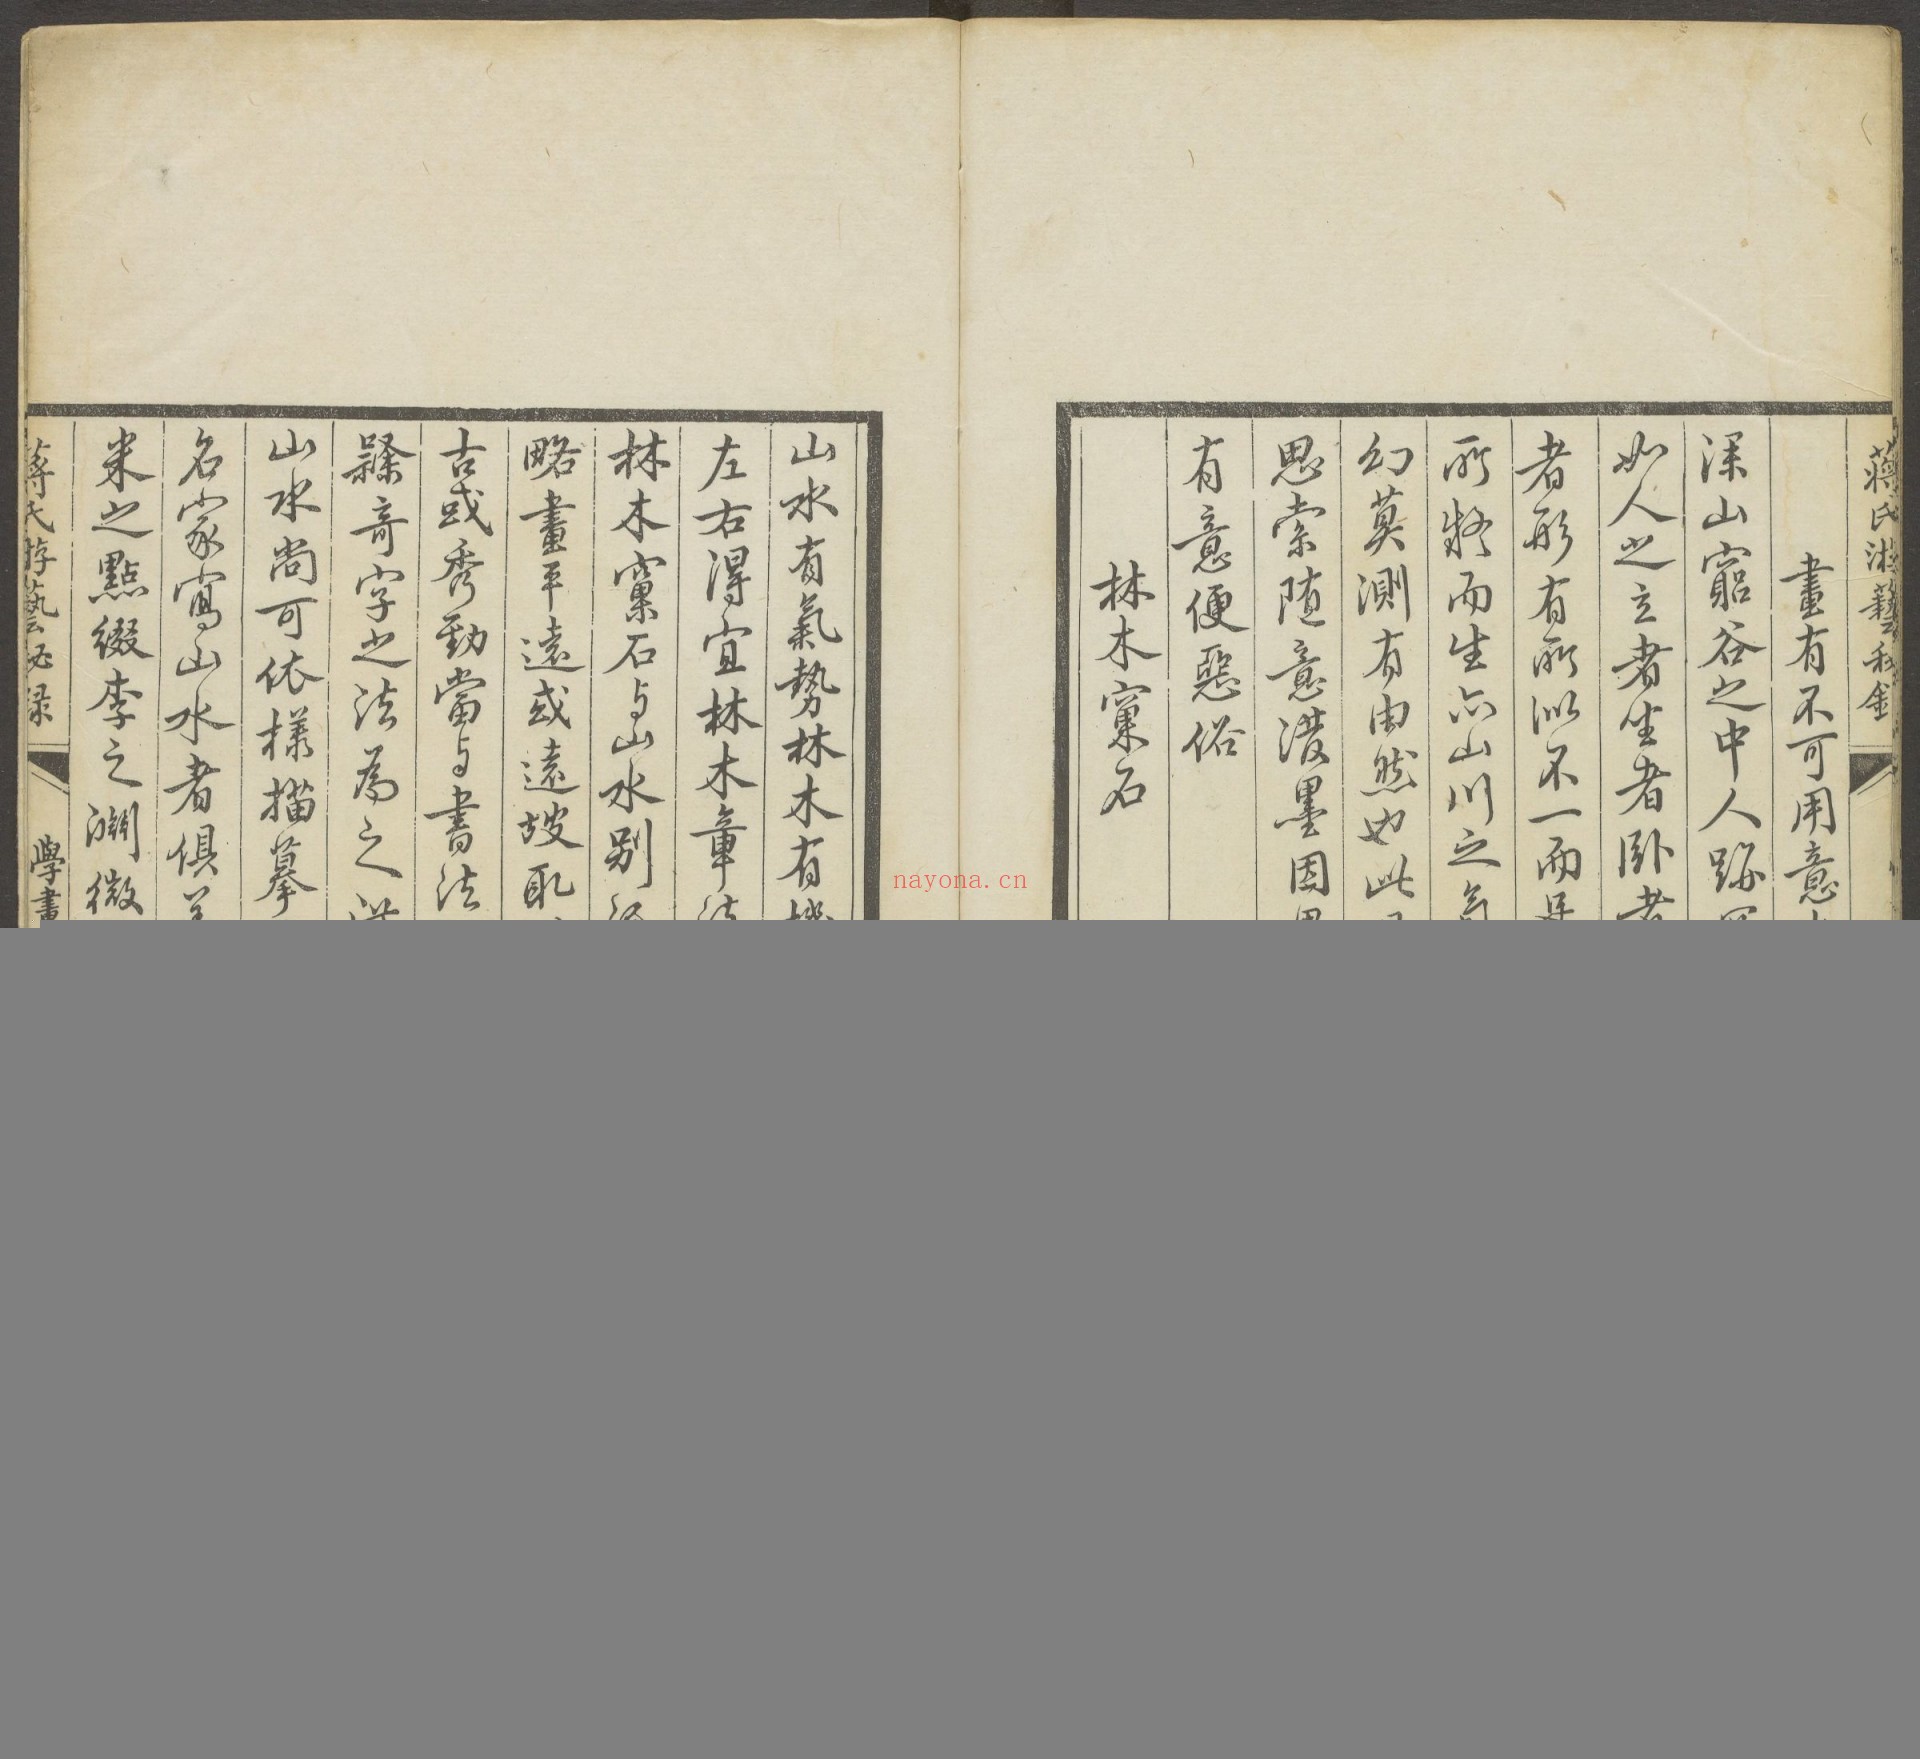 蔣氏游藝秘錄
畫有不可用意
深山窮谷之中人跡
如人之立者坐者卧者
者形有所似不一而
所凝而生亦山川之
幻莫測有由然也此
思索随意潑墨因
有意便惡俗
林木窠石
山水有氣勢林木有
左右得宜林木章法
林木窠石与山水别
略畫平遠或遠坡取
古或秀勁當与書法
隸奇字之法為之
山水尚可依様描摹
名家寫山水者俱
米之點綴李之澗微
蔣氏游藝秘録
學畫
nayona.cn